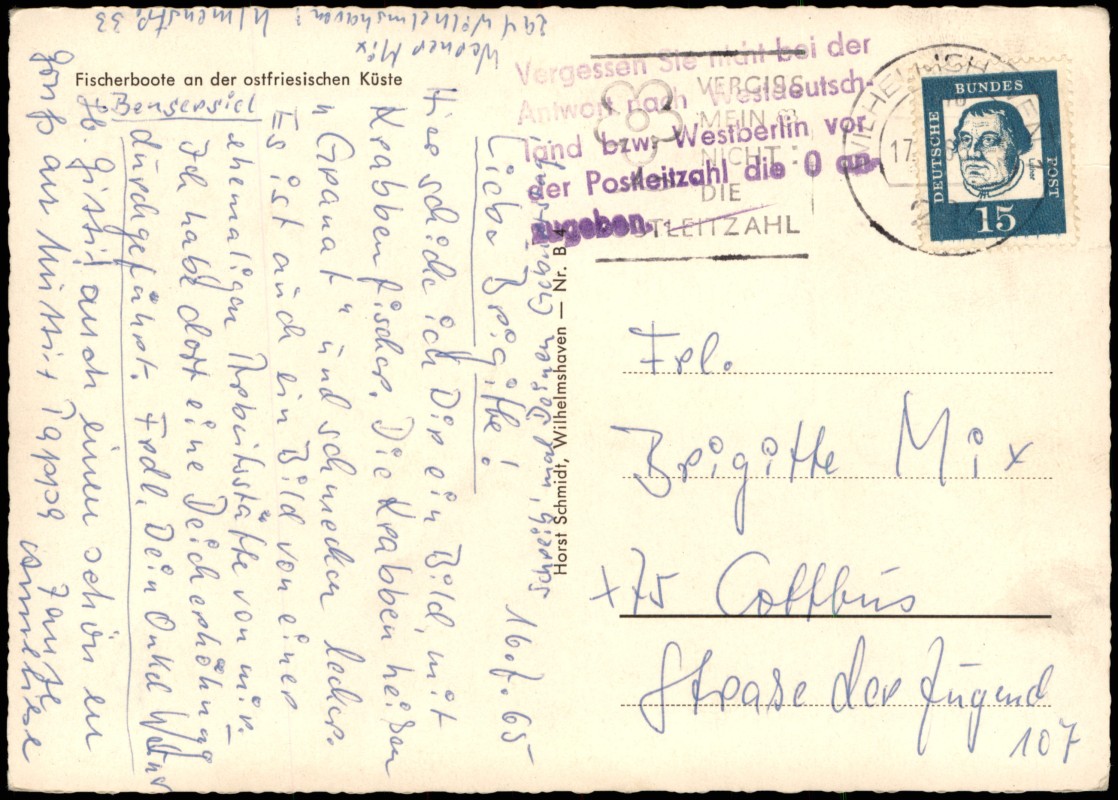 Werner Mix
294 Wilhelmshaven!
Ulmenstr. 33
Fischerboote an der ostfriesischen Küste
16.7.65
Liebe Brigitte!
Hier schicke ich Dir ein Bild mit
Krabbenfischer. Die Krabben heißen
"Granat" und schmecken lecker.
Es ist auch ein Bild von einer
ehemaligen Arbeitsstätte von mir.
Ich habe dort eine Deicherhöhung
durchgeführt. Frdl. Dein Onkel Werner
Bensersiel
auch einen schönen
Gruß an Mutti Pappa Tante
Anneliese
Schreib' mal Deinen Geburtstag
Horst Schmidt, Wilhelmshaven — Nr. B 4
Vergessen Sie nicht bei der
Antwort nach Westdeutsch-
land bzw. Westberlin vor
der Postleitzahl die O an-
zugeben.
VERGISS
MEIN
NICHT:
DIE
POSTLEITZAHL
WILHELMSHAVEN
17.
DEUTSCHE
BUNDES
POST
15
Frl.
Brigitte Mix
x75 Cottbus
Strase der Jugend
107